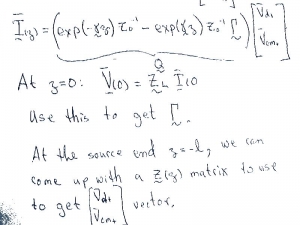 Ī(z) = (exp(-γz) Z₀⁻¹ - exp(γz) Z₀⁻¹ Γ) [V̄dl V̄cm+]
Q
At z=0: V̄(0) = Z_L Ī(0
Use this to get Γ.
At the source end z=-l, we can
come up with a Z(z) matrix to use
to get [V̄dl+ V̄cm+] vector.